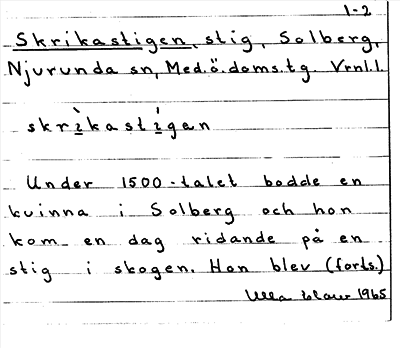 1-2
Skrikastigen, stig, Solberg,
Njurunda sn, Med.ö.doms.tg. Vrnl.l.
skrìkastígen
Under 1500-talet bodde en
kvinna i Solberg och hon
kom en dag ridande på en
stig i skogen. Hon blev (forts.)
Ulla 1965